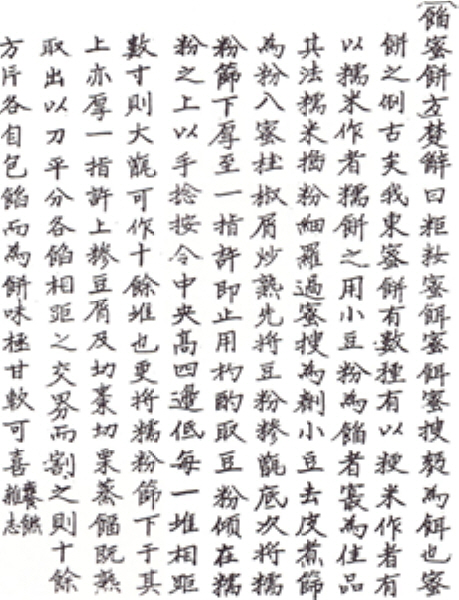 餡蜜餅方楚辭曰粔籹蜜餌蜜餌蜜搜麪為餌也蜜
餅之例古矣我東蜜餅有數種有以粳米作者有
以糯米作者糯餅之用小豆粉為餡者最為佳品
其法糯米擣粉細羅過蜜搜為劑小豆去皮煮篩
為粉入蜜桂椒屑炒熟先將豆粉糝甑底次將糯
粉篩下厚至一指許即止用杓酌取豆粉傾在糯
粉之上以手捻按令中央高四邊低每一堆相距
數寸則大甑可作十餘堆也更將糯粉篩下于其
上亦厚一指許上糝豆屑及切棗切栗蒸餾既熟
取出以刀平分各餡相距之交界而割之則十餘
方片各自包餡而為餅味極甘軟可喜饔饎雜志